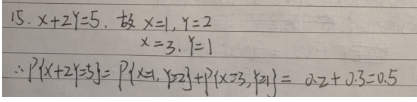 15. x+2Y=5. 故 x=1, Y=2
x=3. Y=1
∴P{x+2Y=5}=P{x=1, Y=2}+P{x=3, Y=1}= 0.2+0.3=0.5